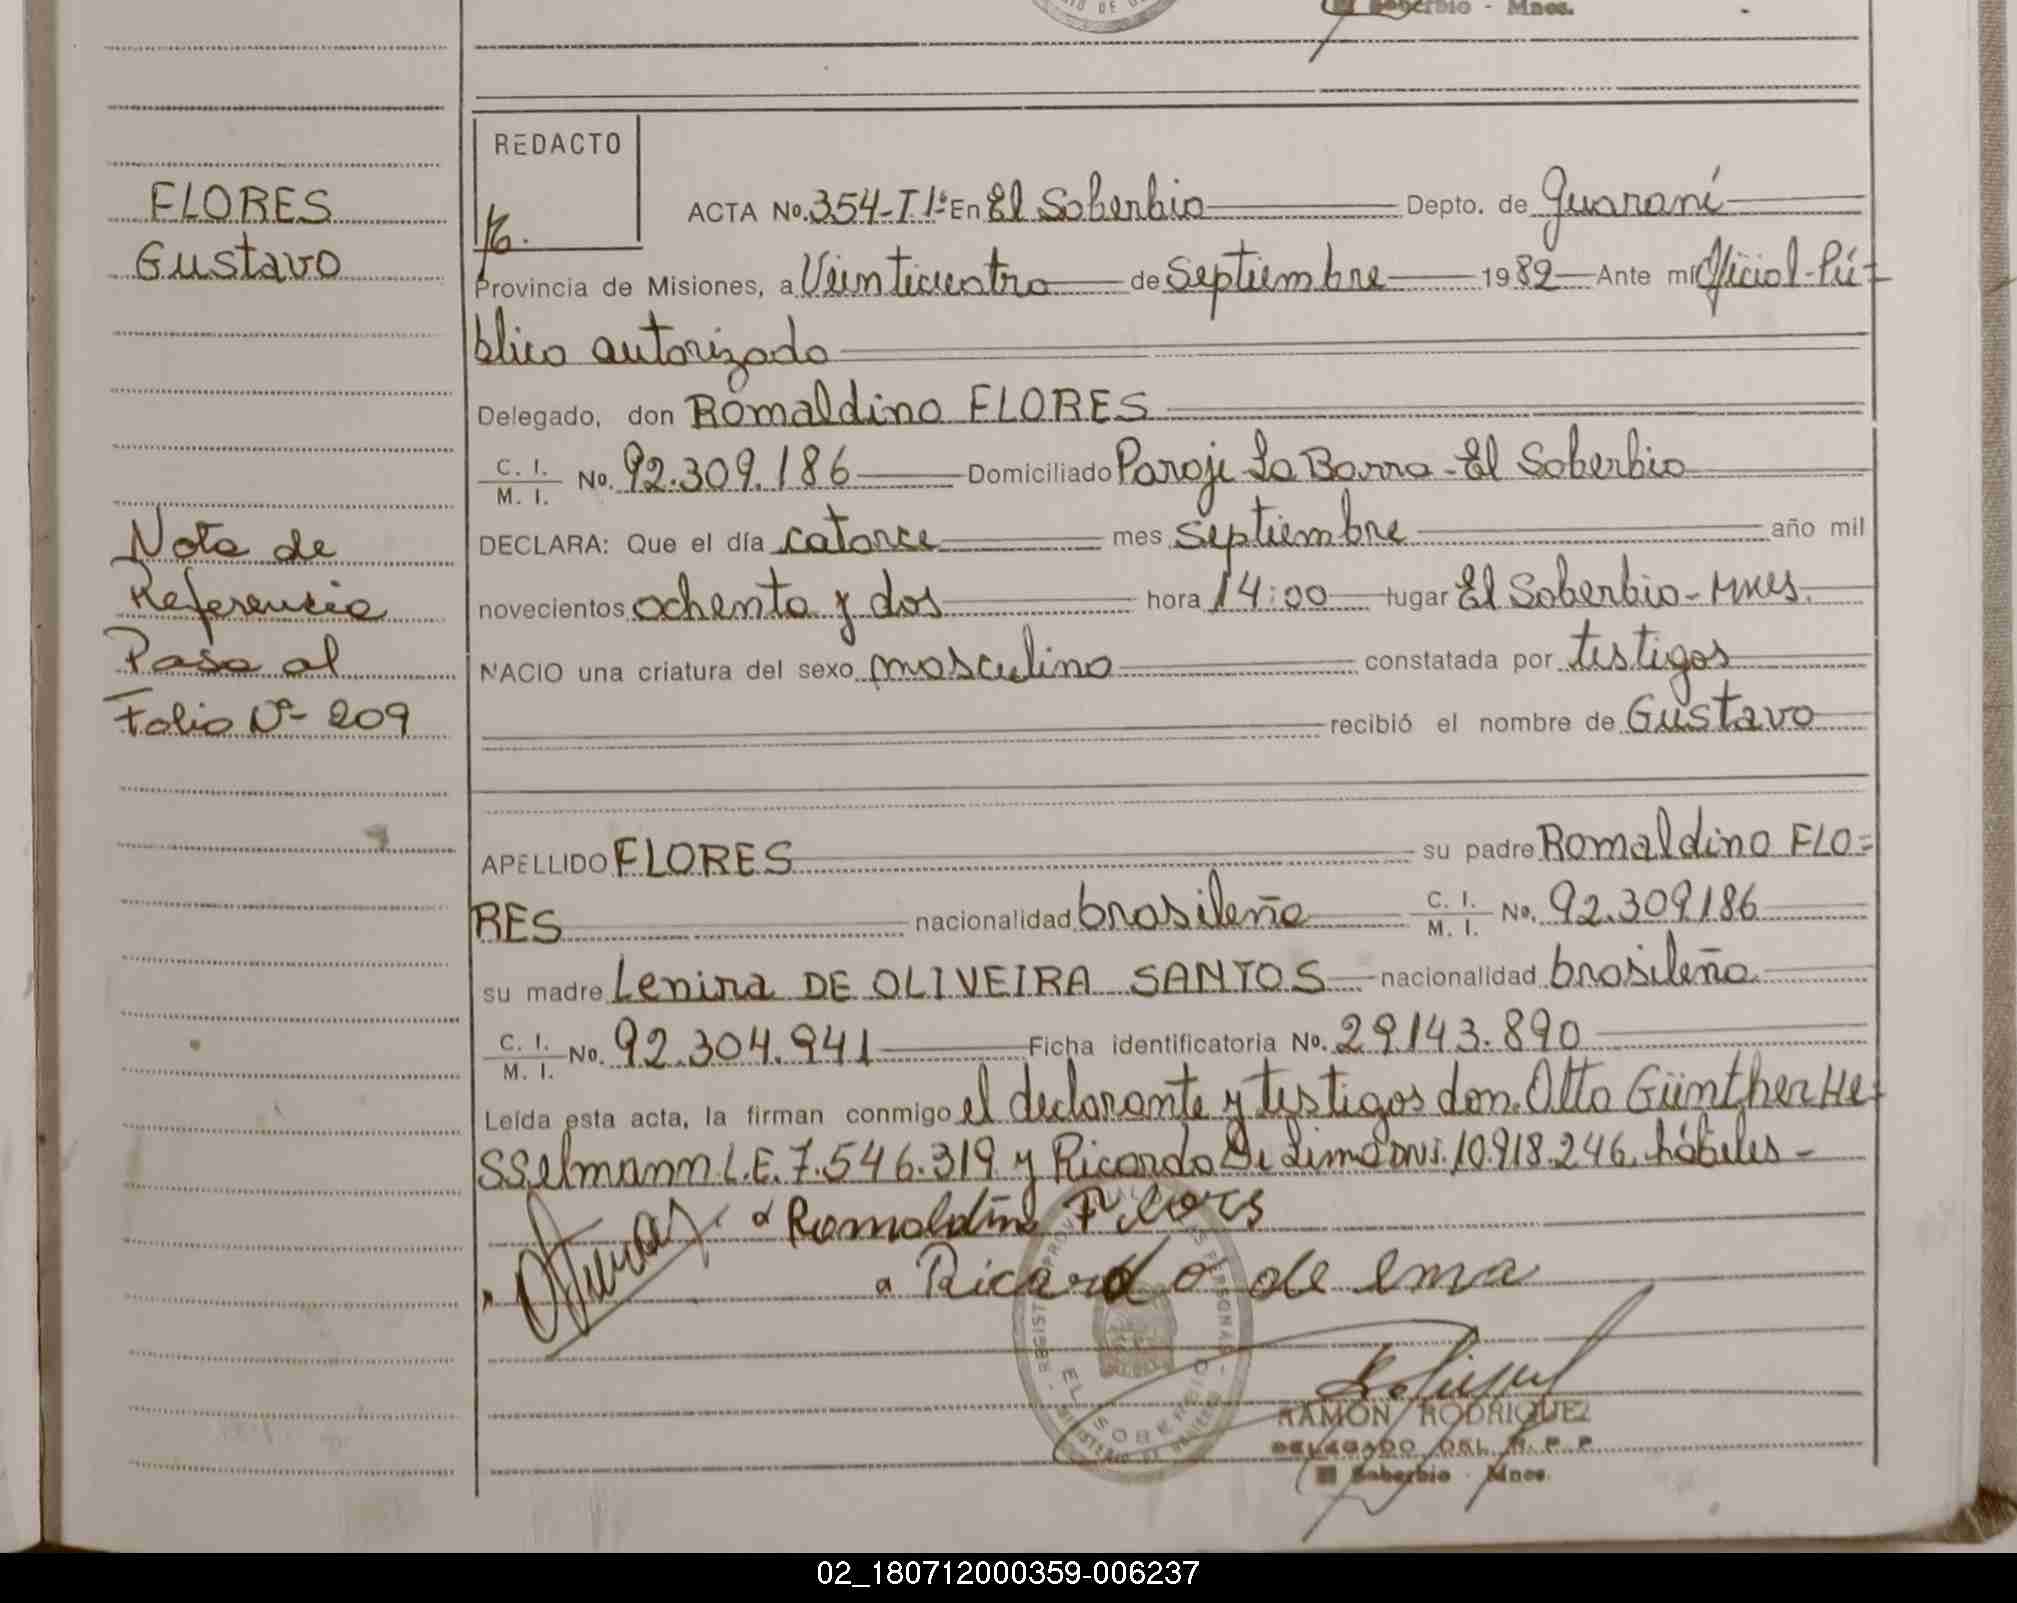 Soberbio - Mnes.
REDACTO
FLORES
Gustavo
ACTA No. 354-T Iº En El Soberbio Depto. de Guaraní
Provincia de Misiones, a Veinticuatro de Septiembre 1982 Ante mí Oficial Pú-
blico autorizado
Delegado, don Romaldino FLORES
C. I.
M. I. No. 92.309.186 Domiciliado Paraje La Barra - El Soberbio
DECLARA: Que el día catorce mes septiembre año mil
novecientos ochenta y dos hora 14:00 lugar El Soberbio - Mnes.
NACIO una criatura del sexo masculino constatada por testigos
recibió el nombre de Gustavo
Nota de
Referencia
Pasa al
Folio Nº- 209
APELLIDO FLORES su padre Romaldino FLO=
RES nacionalidad brasileña C. I.
M. I. No. 92.309.186
su madre Lenira DE OLIVEIRA SANTOS nacionalidad brasileña
C. I.
M. I. No. 92.304.941 Ficha identificatoria No. 29.143.890
Leída esta acta, la firman conmigo el declarante y testigos don Otto Günther He-
sselmann L.E. 7.546.319 y Ricardo De Lima DNI. 10.918.246, hábiles -
Romaldino Flores
Ricardo de Lma
EL SOBERBIO
RAMON RODRIGUEZ
DELEGADO DEL R. P. P.
El Soberbio - Mnes.
02_180712000359-006237